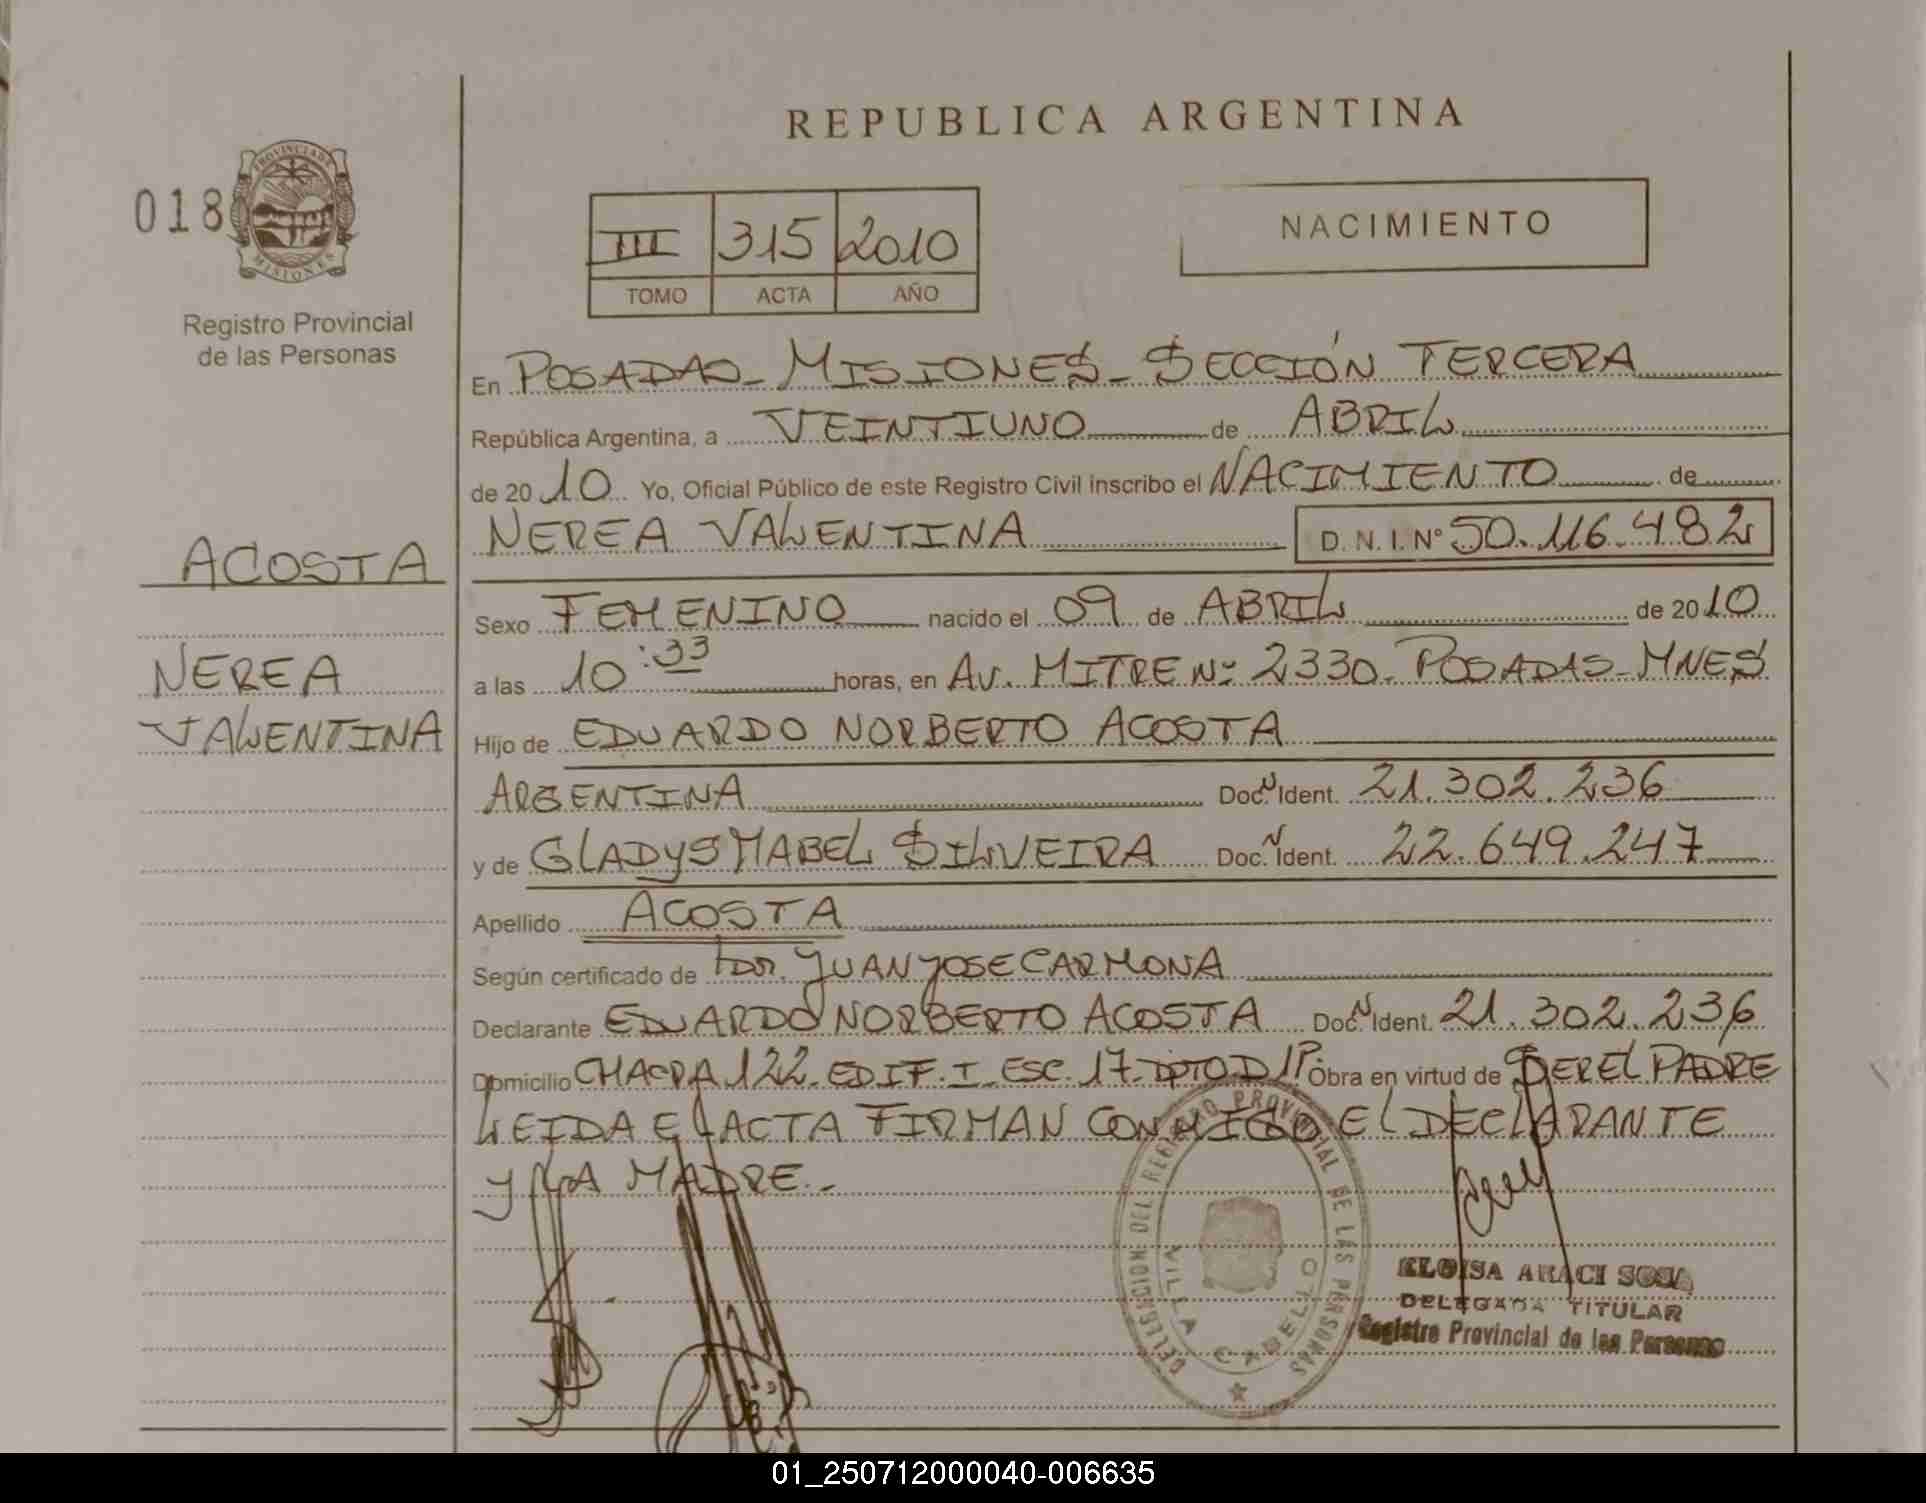 REPUBLICA ARGENTINA
018
PROVINCIA DE
MISIONES
Registro Provincial
de las Personas
III 315 2010
TOMO ACTA AÑO
NACIMIENTO
En POSADAS - MISIONES - SECCIÓN TERCERA
República Argentina, a VEINTIUNO de ABRIL
de 2010 Yo, Oficial Público de este Registro Civil inscribo el NACIMIENTO de
NEREA VALENTINA D.N.I.Nº 50.116.482
ACOSTA
Sexo FEMENINO nacido el 09 de ABRIL de 2010
NEREA
a las 10:33 horas, en AV. MITRE Nº 2330 - POSADAS - MNES
VALENTINA
Hijo de EDUARDO NORBERTO ACOSTA
ARGENTINA Doc. N Ident. 21.302.236
y de GLADYS MABEL SILVEIRA Doc. N Ident. 22.649.247
Apellido ACOSTA
Según certificado de Dr. JUAN JOSE CARMONA
Declarante EDUARDO NORBERTO ACOSTA Doc. N Ident. 21.302.236
Domicilio CHACRA 122 - EDIF. I - ESC. 17 - DPTO D 1P. Obra en virtud de SER EL PADRE
LEIDA EL ACTA FIRMAN CONMIGO EL DECLARANTE
Y LA MADRE.-
DELEGACION DEL REGISTRO PROVINCIAL DE LAS PERSONAS
VILLA CABELLO
ELOISA ARACI SOSA
DELEGADA TITULAR
Registro Provincial de las Personas
01_250712000040-006635